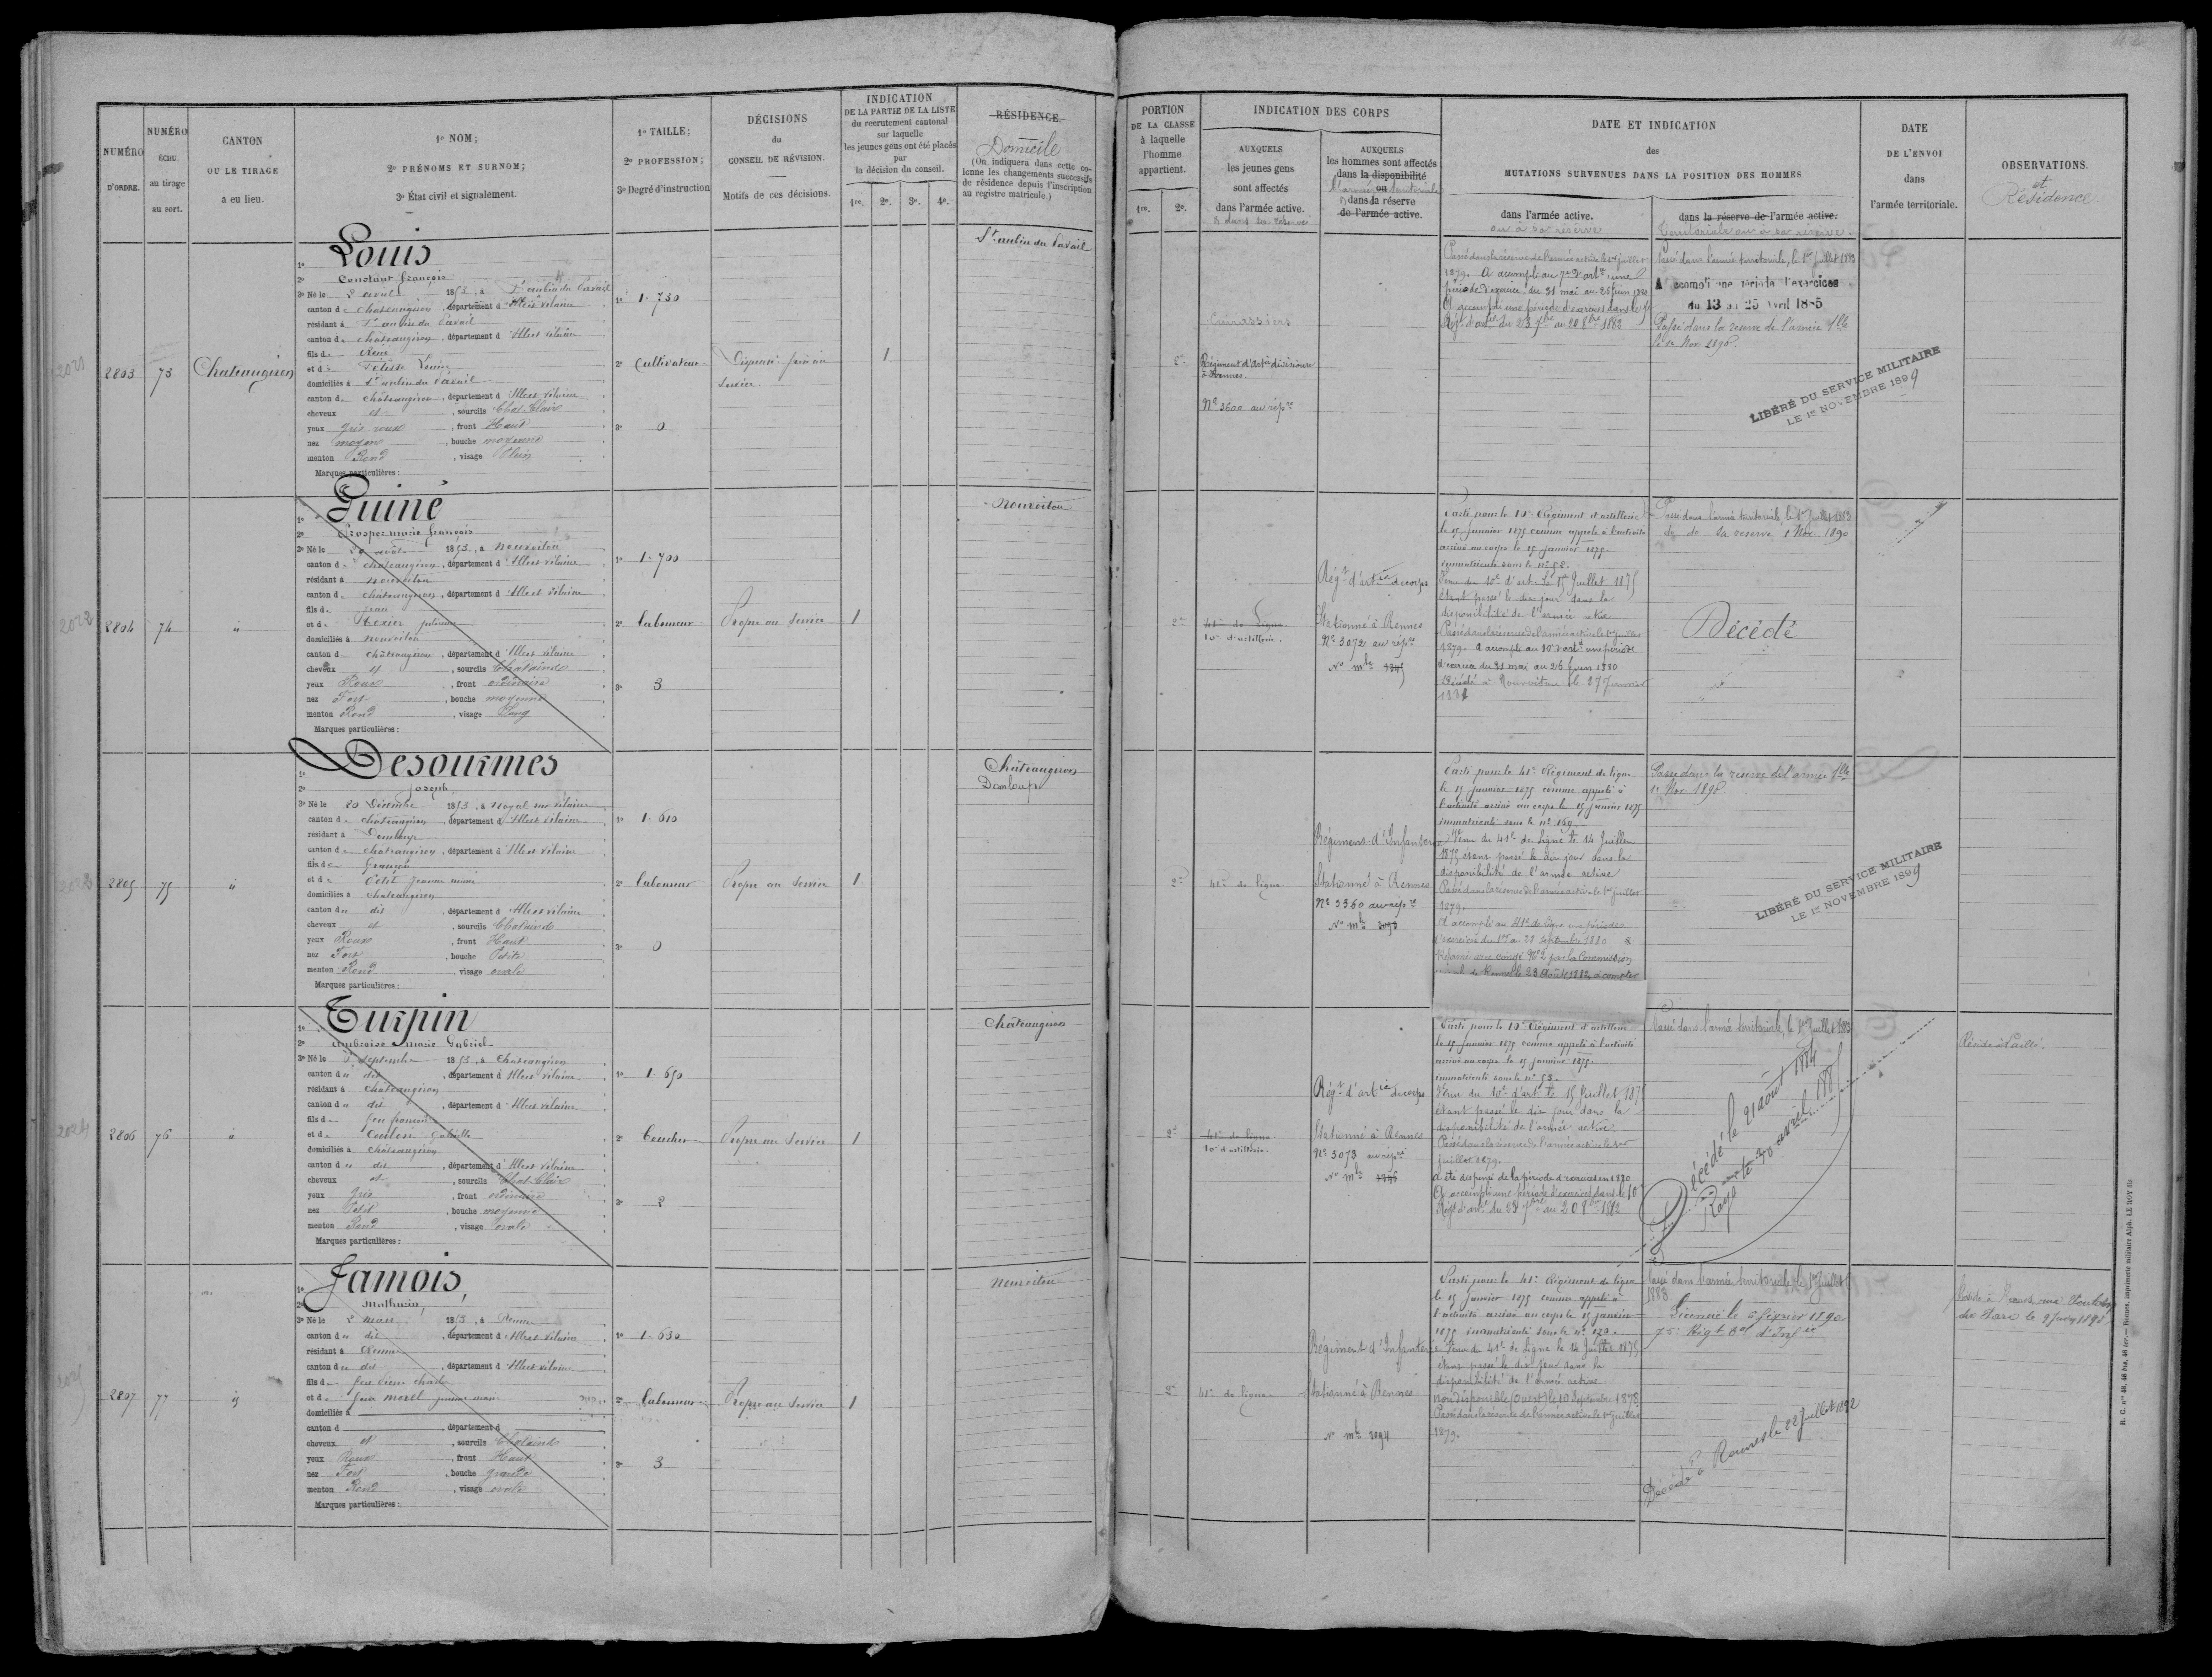 42
NUMÉRO
D'ORDRE.
NUMÉRO
ÉCHU
au tirage
au sort.
CANTON
OU LE TIRAGE
a eu lieu.
1º NOM;
2º PRÉNOMS ET SURNOM;
3º État civil et signalement.
1º TAILLE;
2º PROFESSION;
3º Degré d'instruction
DÉCISIONS
du
CONSEIL DE RÉVISION.
Motifs de ces décisions.
INDICATION
DE LA PARTIE DE LA LISTE
du recrutement cantonal
sur laquelle
les jeunes gens ont été placés
par
la décision du conseil.
1re. 2e. 3e. 4e.
RÉSIDENCE.
Domicile
(On indiquera dans cette co-
lonne les changements successifs
de résidence depuis l'inscription
au registre matricule.)
PORTION
DE LA CLASSE
à laquelle
l'homme
appartient.
1re. 2e.
INDICATION DES CORPS
AUXQUELS
les jeunes gens
sont affectés
dans l'armée active.
AUXQUELS
les hommes sont affectés
dans la disponibilité
ou
dans la réserve
de l'armée active.
DATE ET INDICATION
des
MUTATIONS SURVENUES DANS LA POSITION DES HOMMES
dans l'armée active.
ou à sa réserve
dans la réserve de l'armée active.
territoriale ou à sa réserve
DATE
DE L'ENVOI
dans
l'armée territoriale.
OBSERVATIONS.
et
Résidence.
2021
2803 73 Chateaugiron
1º Louis
2º Constant françois
3º Né le 2 avril 1853, à St aubin du Pavail
canton de chateaugiron, département d'Ille et vilaine
résidant à St aubin du Pavail
canton de châteaugiron, département d'Ille et vilaine
fils de René
et de
domiciliés à St aubin du Pavail
canton de châteaugiron, département d'Ille et vilaine
cheveux et, sourcils Chat. Clair
yeux gris roux, front Haut
nez moyen, bouche moyenne
menton Rond, visage Plein
Marques particulières:
1º 1.730
2º Cultivateur
3º 0
Dispensé frère au
service.
1
St aubin du Pavail
2e
Cuirassiers
Régiment d'Artie divisionre
à Rennes.
Nº 3600 au répre
Passé dans la réserve de l'armée active le 1er juillet
1879. A accompli au 7e d'artie une
période d'exercice, du 31 mai au 26 juin 1880
A accompli une période d'exercice dans le
Régt d'artie du 23 7bre au 20 8bre 1882
Passé dans l'armée territoriale, le 1er Juillet 1883
A accompli une période d'exercices
du 13 au 25 avril 1885
Passé dans la reserve de l'armée tlle
le 1er Nov. 1890.
LIBÉRÉ DU SERVICE MILITAIRE
LE 1er NOVEMBRE 1899
2022
2804 74 "
1º Guiné
2º Prosper marie françois
3º Né le 20 août 1853, à nouvoitou
canton de chateaugiron, département d'Ille et vilaine
résidant à nouvoitou
canton de châteaugiron, département d'Ille et vilaine
fils de jean
et de texier julienne
domiciliés à nouvoitou
canton de châteaugiron, département d'Ille et vilaine
cheveux et, sourcils Chatains
yeux Roux, front ordinaire
nez Fort, bouche moyenne
menton Rond, visage Long
Marques particulières:
1º 1.700
2º Laboureur
3º 3
Propre au Service
1
nouvoitou
2e
41e de Ligne
10e d'artillerie.
Régt d'artie de corps
Stationné à Rennes
Nº 3072 au répre
Nº mle 1245
Parti pour le 10e Régiment d'artillerie
le 15 janvier 1875 comme appelé à l'activité
arrivé au corps le 15 janvier 1875.
immatriculé sous le nº 52.
Venu du 10e d'art. le 15 Juillet 1875
étant passé le dix jour dans la
disponibilité de l'armée active
Passé dans la réserve de l'armée active le 1er juillet
1879. A accompli au 10e d'artie une période
d'exercice du 31 mai au 26 juin 1880
Décédé à Nouvoitou le 27 Janvier
Passé dans l'armée territoriale, le 1er Juillet 1883
do do sa reserve 1 Nov 1890
Décédé
2023
2805 75 "
1º Desourmes
2º joseph
3º Né le 20 Décembre 1853, à noyal sur vilaine
canton de chateaugiron, département d'Ille et vilaine
résidant à Domloup
canton de chateaugiron, département d'Ille et vilaine
fils de françois
et de Petit jeanne marie
domiciliés à chateaugiron
canton du dit, département d'Ille et vilaine
cheveux et, sourcils Chatains
yeux Roux, front Haut
nez Fort, bouche Petite
menton Rond, visage ovale
Marques particulières:
1º 1.610
2º Laboureur
3º 0
Propre au Service
1
Châteaugiron
Domloup
2e
41e de ligne
Régiment d'Infanterie
Stationné à Rennes
Nº 3360 au répre
Nº mle 2093
Parti pour le 41e Régiment de ligne
le 15 janvier 1875 comme appelé à
l'activité arrivé au corps le 15 janvier 1875
immatriculé sous le nº 169.
Venu du 41e de Ligne le 14 Juillet
1875 étant passé le dix jour dans la
disponibilité de l'armée active
Passé dans la réserve de l'armée active le 1er juillet
1879.
A accompli au 41e de ligne une période
d'exercice du 1er au 28 septembre 1880
Réformé avec congé Nº 2 par la Commission
spéciale de Rennes le 23 Août 1882 à compter
Passé dans la reserve de l'armée tlle
1er Nov. 1890.
LIBÉRÉ DU SERVICE MILITAIRE
LE 1er NOVEMBRE 1899
2024
2806 76 "
1º Turpin
2º ambroise marie Gabriel
3º Né le septembre 1853, à Chateaugiron
canton du dit, département d'Ille et vilaine
résidant à Châteaugiron
canton du dit, département d'Ille et vilaine
fils de feu françois
et de Coulon Gabrielle
domiciliés à châteaugiron
canton du dit, département d'Ille et vilaine
cheveux et, sourcils Chat. Clair
yeux Gris, front ordinaire
nez Petit, bouche moyenne
menton Rond, visage ovale
Marques particulières:
1º 1.650
2º Boucher
3º 2
Propre au Service
1
Châteaugiron
2e
41e de ligne
10e d'artillerie.
Régt d'artie de corps
Stationné à Rennes
Nº 3073 au répre
Nº mle 1246
Parti pour le 10e Régiment d'artillerie
le 15 Janvier 1875 comme appelé à l'activité
arrivé au corps le 15 janvier 1875.
immatriculé sous le nº 53.
Venu du 10e d'art. le 15 Juillet 1875
étant passé le dix jour dans la
disponibilité de l'armée active.
Passé dans la réserve de l'armée active le 1er
juillet 1879.
A été dispensé de la période d'exercices en 1880
A accompli une période d'exercice dans le 10e
Régt d'artie du 23 7bre au 20 8bre 1882
Passé dans l'armée territoriale, le 1er Juillet 1883
Décédé le 21 août 1884
Rayé le 30 avril 1885
Réside à Paillé.
2025
2807 77 "
1º Jamois,
2º Mathurin,
3º Né le 2 mars 1853, à Rennes
canton du dit, département d'Ille et vilaine
résidant à Rennes
canton du dit, département d'Ille et vilaine
fils de feu
et de feue morel jeanne marie
domiciliés à
canton d, département d
cheveux et, sourcils Chatains
yeux Roux, front Haut
nez Fort, bouche grande
menton Rond, visage ovale
Marques particulières:
1º 1.630
2º Laboureur
3º 3
Propre au Service
1
nouvoitou
2e
41e de ligne.
Régiment d'Infanterie
Stationné à Rennes
Nº mle 2094
Parti pour le 41e Régiment de ligne
le 15 janvier 1875 comme appelé à
l'activité arrivé au corps le 15 janvier
1875 immatriculé sous le nº 173.
Venu du 41e de Ligne le 14 Juillet 1875
étant passé le dix jour dans la
disponibilité de l'armée active
Non disponible (Ouest) le 10 Septembre 1878.
Passé dans la réserve de l'armée active le 1er juillet
1879.
Passé dans l'armée territoriale, le 1er Juillet
1883.
Licencié le 6 février 1890
75e Régt d'Infie
Décédé à Rennes le 22 Juillet 1892
Réside à Rennes, rue
H. C. nos 48, 48 bis, 48 ter. — Rennes, imprimerie militaire Alph. LE ROY fils.